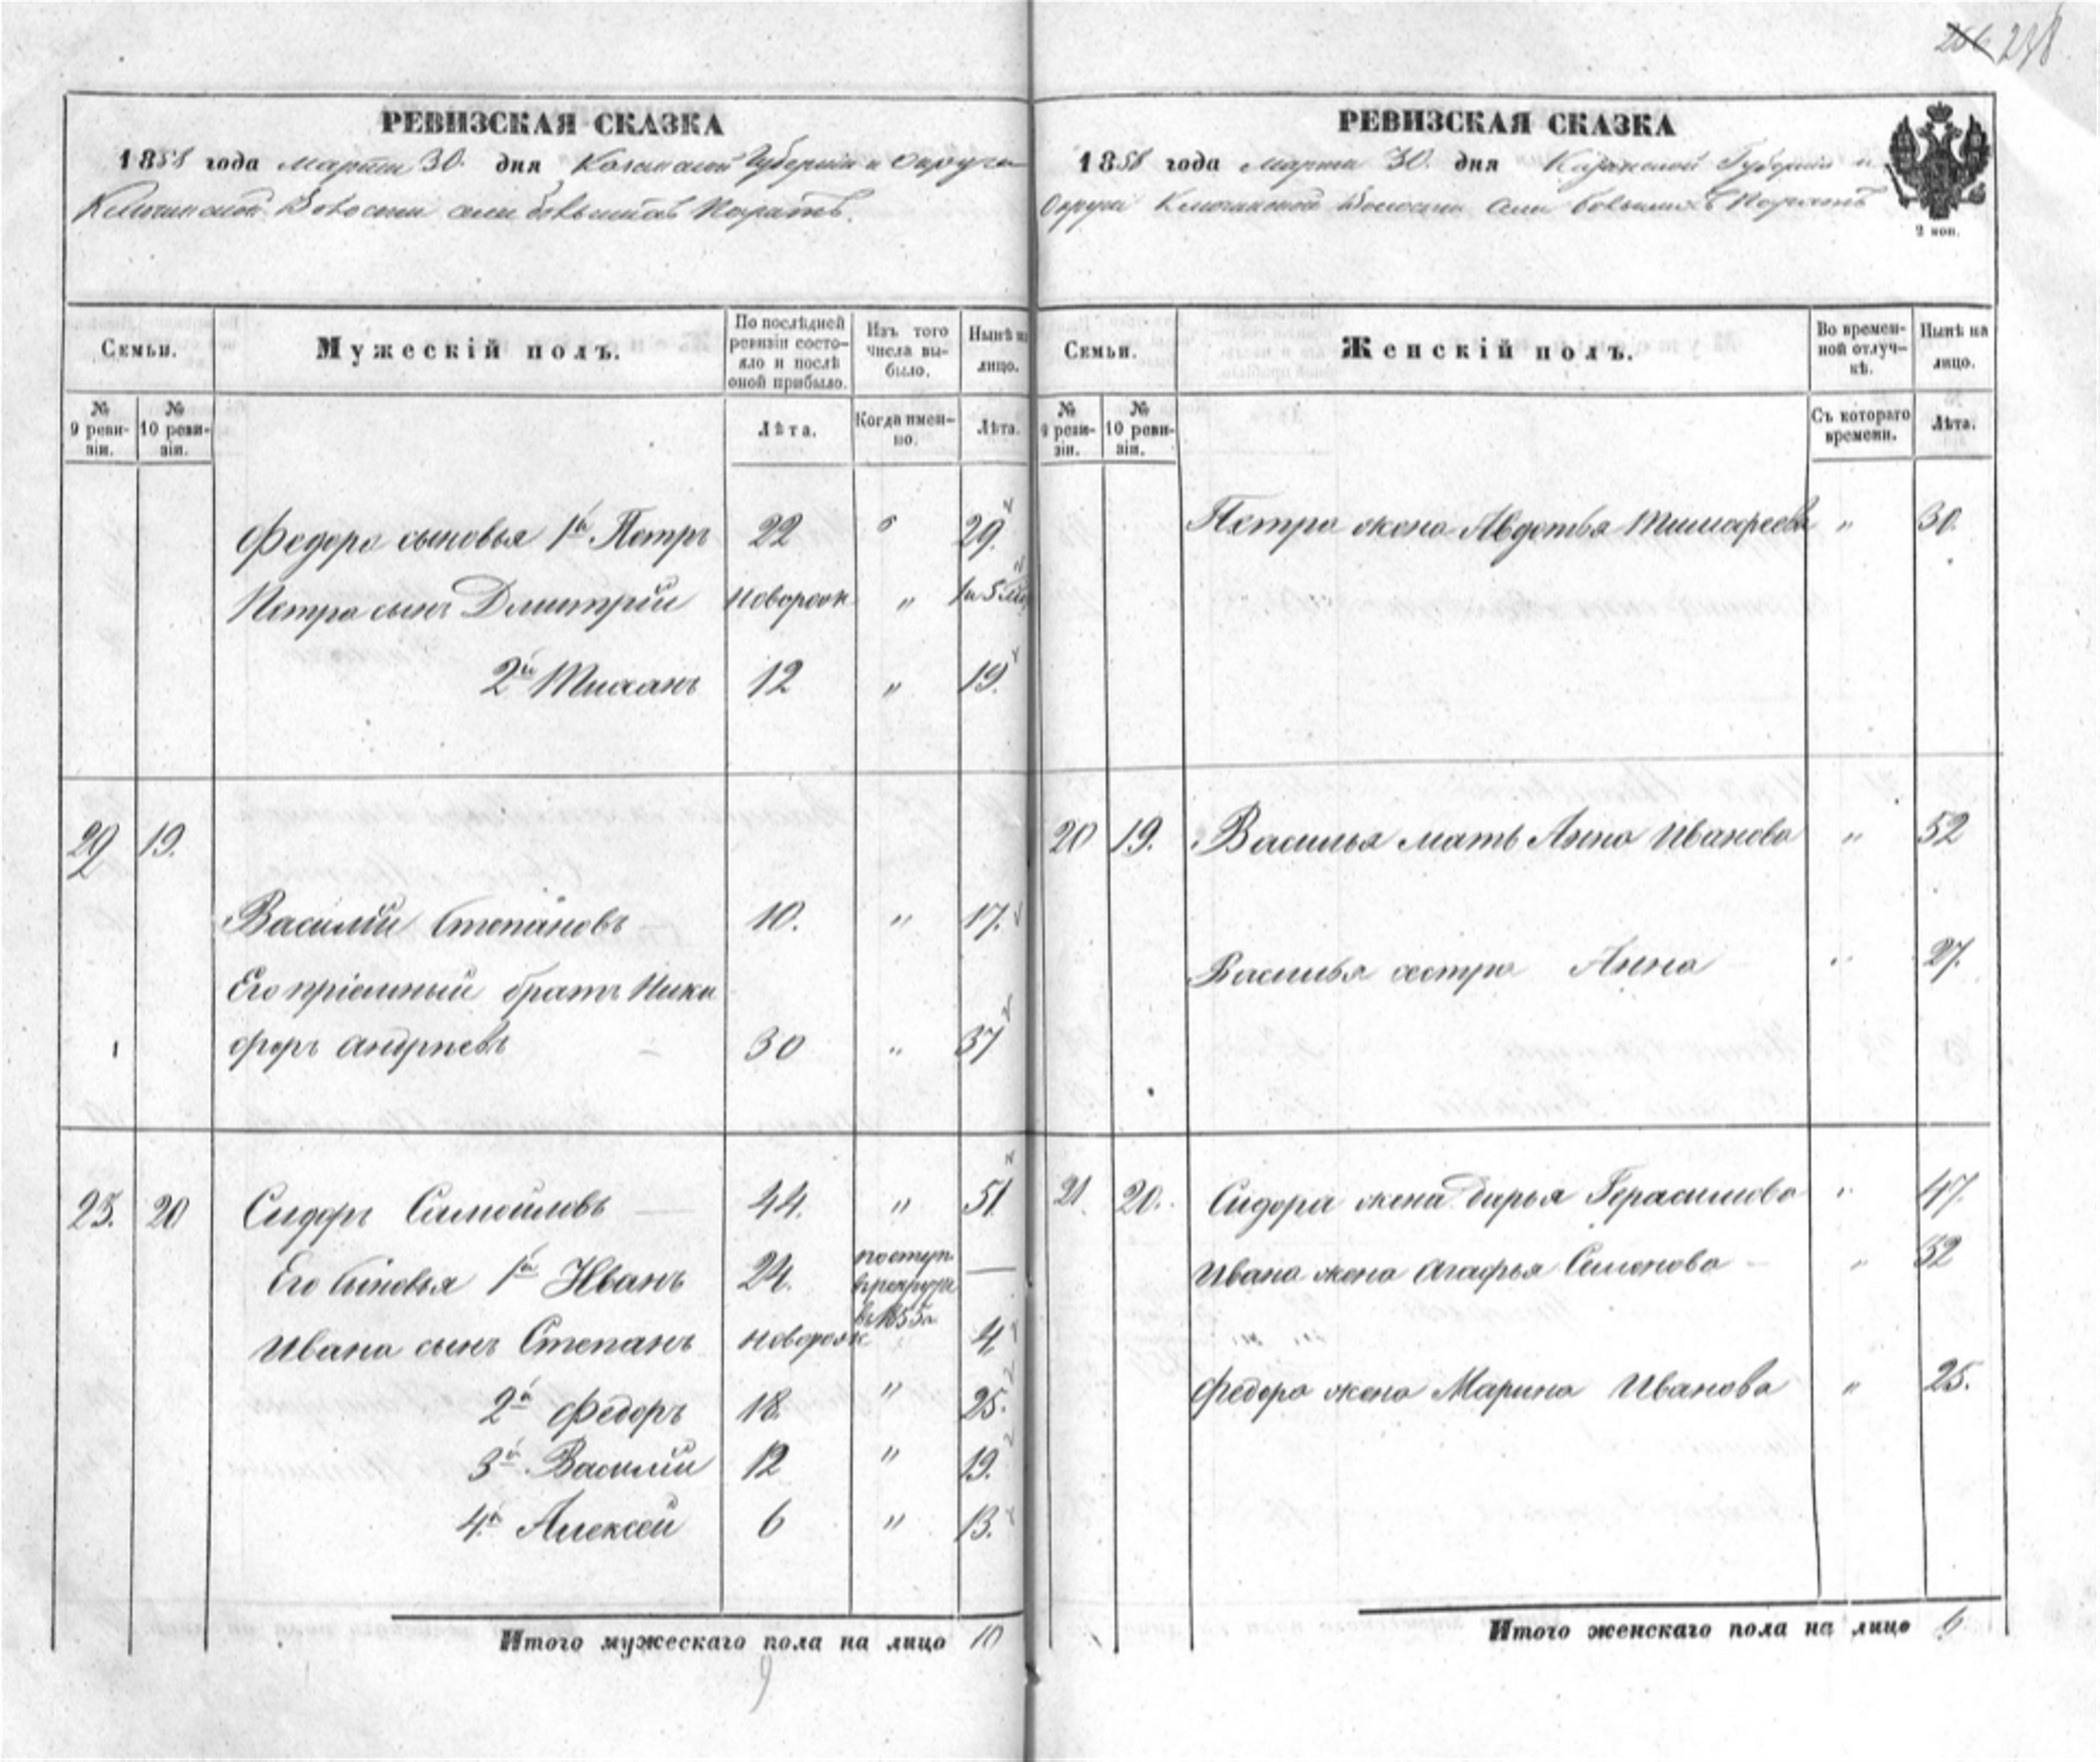 238
РЕВИЗСКАЯ СКАЗКА
1858 года Марта 30. дня Казанской Губернии и Округа
Ключинской Волости села Большихъ
Семьи. Мужескій полъ. По послѣдней ревизіи состояло и послѣ оной прибыло. Изъ того числа выбыло. Нынѣ на лицо.
№ 9 ревизіи. № 10 ревизіи. Лѣта. Когда именно. Лѣта.
Федора сыновья 1й Петръ 22 " 29.
Петра сынъ Дмитрій новорож " 1 и 5 мес
2й 12 " 19.
29 19.
Василій Степановъ 10. " 17.
Его пріемный братъ Ники
форъ Андріевъ 30 " 37
25. 20 Сидоръ Самойловъ 44. " 51.
Его сыновья 1й Иванъ 24. поступ —
в рекруты
въ 1855 г
Ивана сынъ Степанъ новорож 4
2й Федоръ 18. " 25.
3й Василій 12 " 19.
4й Алексей 6 " 13.
Итого мужескаго пола на лицо 10
9
РЕВИЗСКАЯ СКАЗКА
1858 года Марта 30. дня Казанской Губерніи и
Округи Ключинской Волости Села Большихъ
2 коп.
Семьи. Женскій полъ. Во временной отлучкѣ. Нынѣ на лицо.
№ 9 ревизіи. № 10 ревизіи. Съ котораго времени. Лѣта.
Петра жена Авдотья Тимофеева " 30.
20 19. Василья мать Анна Иванова " 52
Василья сестра Анна " 27.
21. 20. Сидора жена Дарья Герасимова " 47.
Ивана жена Агафья Семенова " 32
Федора жена Марина Иванова " 25.
Итого женскаго пола на лицо 6